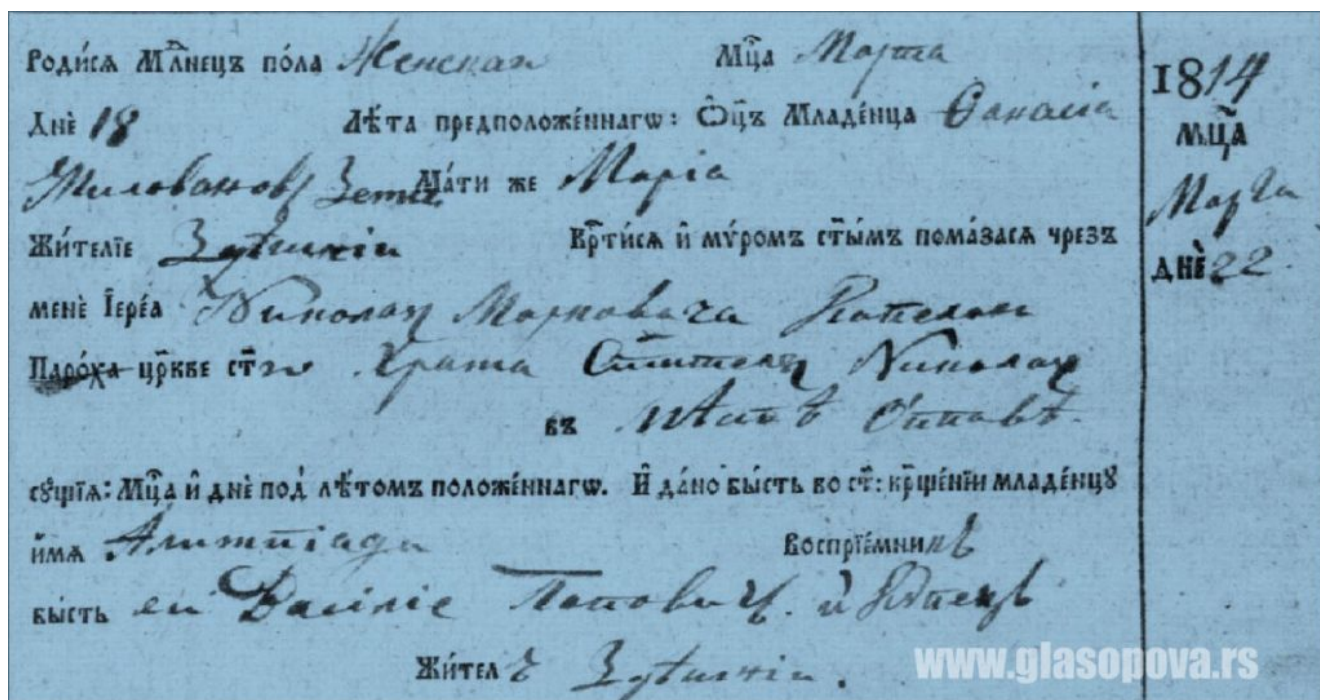 Роди́сѧ Мл҃нецъ по́ла Женскаѧ Мц҃а Марта
Днѐ 18 Лѣта предположе́ннагѡ: Ѻц҃ъ Младе́нца Ѳанасіа
Миловановъ Мати же Маріа
Жи́теліе Здѣшніи Кр҃ти́сѧ и҆ мѵ́ромъ ст҃ымъ пома́засѧ чрезъ
менѐ І҆ере́а Николаѧ Марковича Капелана
Паро́ха цр҃кве ст҃ Храма Николаѧ
въ
сꙋ́щіѧ: Мц҃а и҆ днѐ под̾ лѣ́томъ положе́ннагѡ. И҆ да́но бы́сть во ст҃: кр҃ще́ніи младе́нцꙋ
и҆́мѧ Алимпіада Воспріе́мникъ
бы́сть ей Василіе Поповичъ и Купецъ
Жи́тель Здѣшніи.
1814
Мц҃а
Марта
днѐ 22
www.glasopova.rs